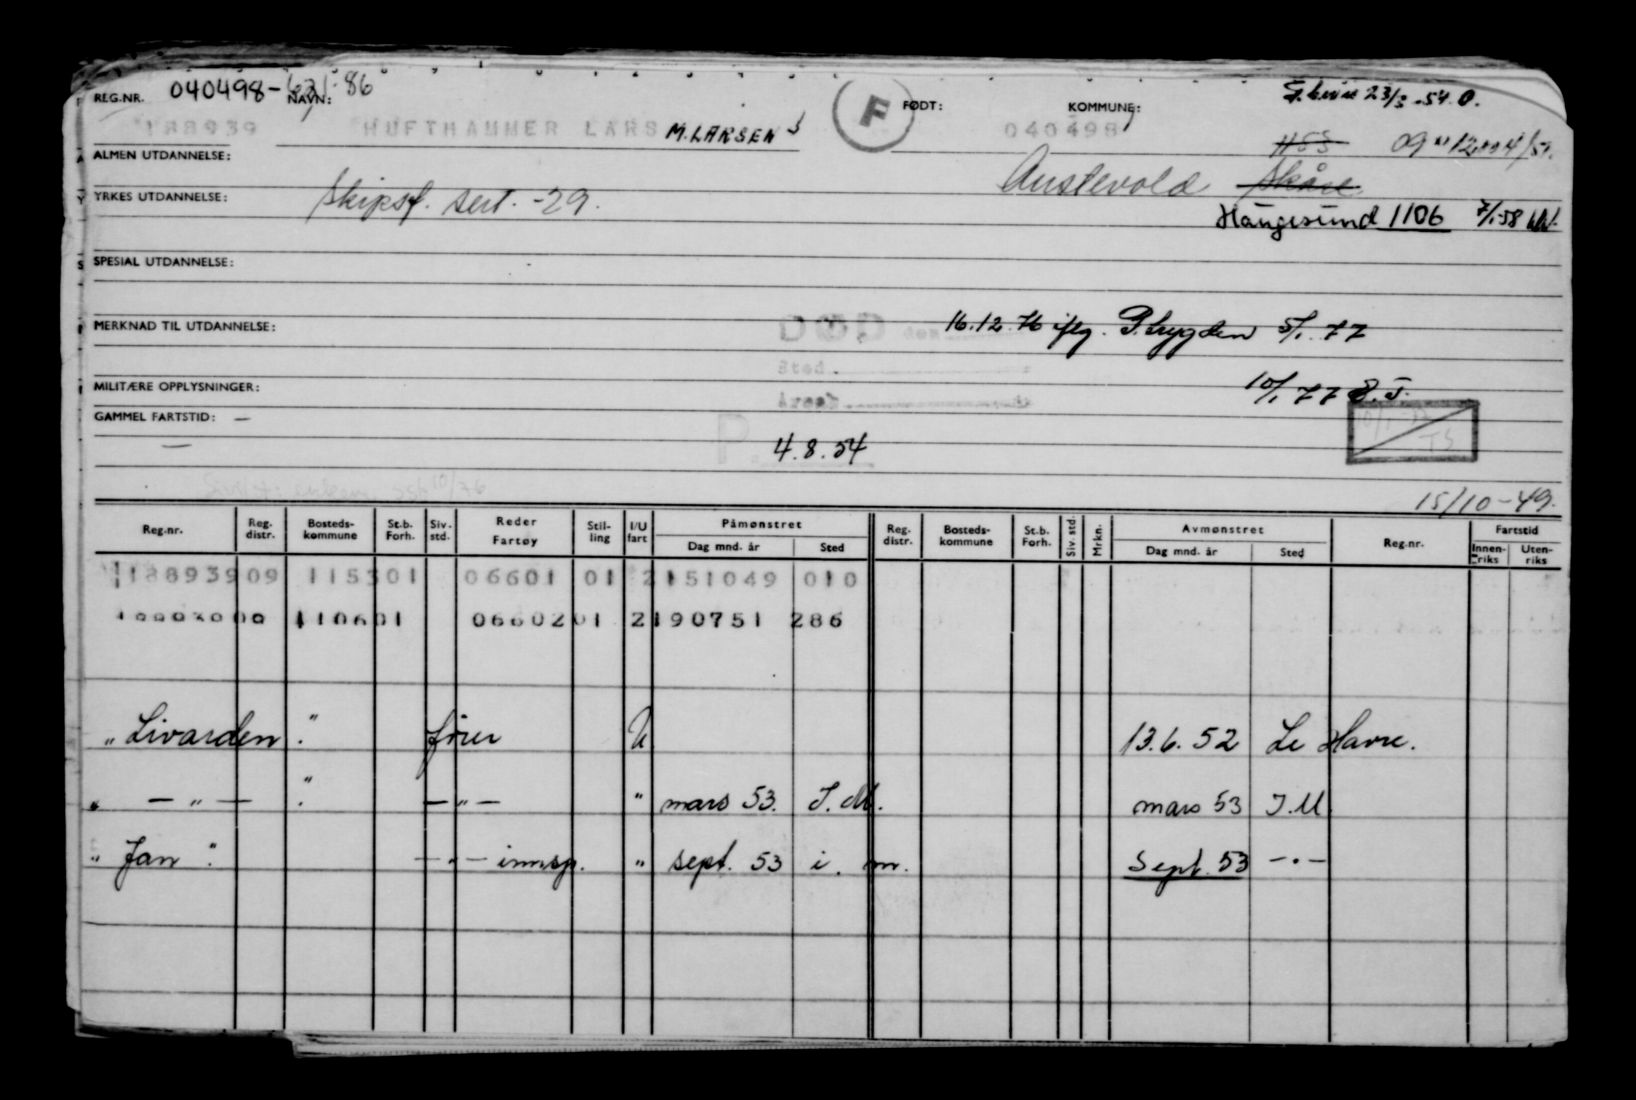 REG.NR. 040498- 86 NAVN: F FØDT: KOMMUNE: 23/3-54.
188939 HUFTHAMMER LARS M.LARSEN 040498 09
ALMEN UTDANNELSE:
Austevold Skåre
YRKES UTDANNELSE: Skipsf. sert. -29.
Haugesund 1106 7/1-58
SPESIAL UTDANNELSE:
MERKNAD TIL UTDANNELSE: DØD den 16.12.76 iflg. P.trygden 5/1. 77
Sted
MILITÆRE OPPLYSNINGER: 10/1 77
Årsak
GAMMEL FARTSTID: —
— P. 4.8.54
15/10-49.
Reg.nr. Reg. distr. Bosteds- kommune St.b. Forh. Siv. std. Reder Fartøy Stil- ling I/U fart Påmønstret Dag mnd. år Sted Reg. distr. Bosteds- kommune St.b. Forh. Siv. std. Mrkn. Avmønstret Dag mnd. år Sted Reg.nr. Fartstid Innen- riks Uten- riks
188939 09 1153 01 06601 01 2 151049 010
09 1106 01 06602 01 2 190751 286
"Livarden" fører U 13.6. 52 Le Havre.
" — " — " — " — " mars 53. I.M. mars 53 I.M.
" Jan " — " — innsp. " sept. 53 i. m. Sept. 53 — " —